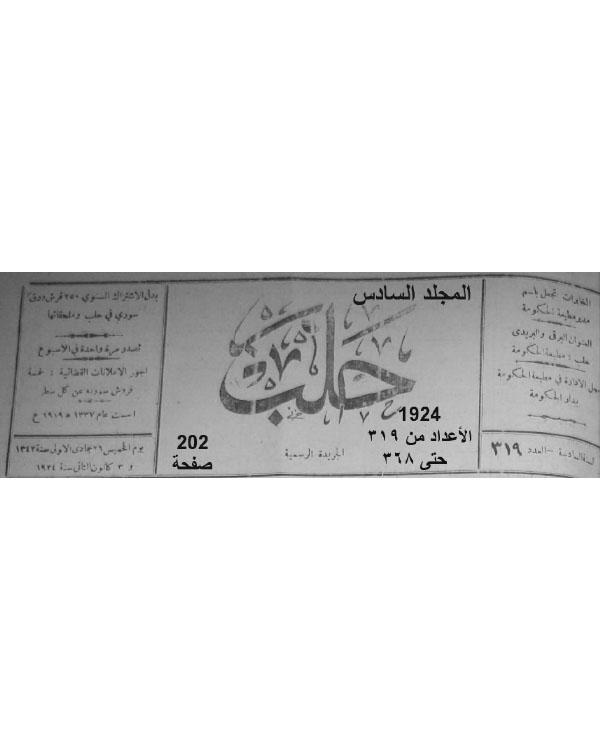 المخابرات تجمل باسم
مدير مطبعة الحكومة
العنوان البرقي والبريدي
حلب : مطبعة الحكومة
الادارة في مطبعة الحكومة
بدار الحكومة
السنة السادسة — العدد ٣١٩
المجلد السادس
حلب
1924
الأعداد من ٣١٩
حتى ٣٦٨
202
صفحة
الجريدة الرسمية
بدل الاشتراك السنوي ٢٥٠ قرش ورق
سوري في حلب وملحقاتها
تصدر مرة واحدة في الاسبوع
اجور الاعلانات القضائية : خمسة
قروش سورية عن كل سطر
اسست عام ١٣٣٧ ھ ١٩١٩ م
يوم الخميس ٢٦ جمادى الاولى سنة ١٣٤٢
و ٣ كانون الثاني سنة ١٩٢٤